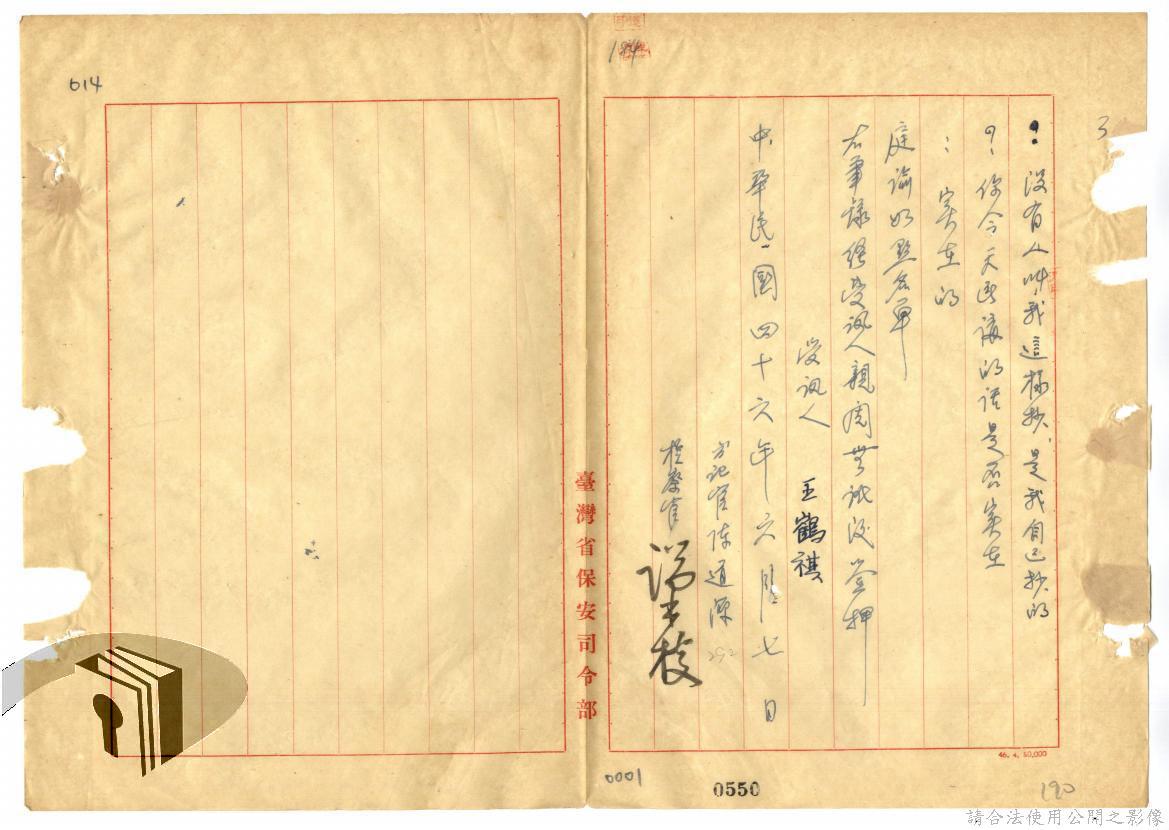 3
：没有人叫我這樣抄，是我自己抄的
？：你今天所講的話是否實在
：實在的
庭諭如點名單
右筆錄經受訊人親閱無訛後簽押
受訊人 王鶴祺
中華民國四十六年六月七日
書記官陳道源
檢察官
臺灣省保安司令部
614
46. 4. 50,000
0001
0550
190
請合法使用公開之影像